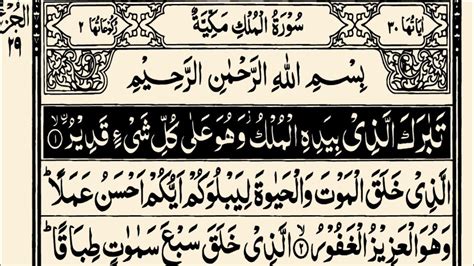 اٰیَاتُهَا ٣٠ سُوْرَةُ الْمُلْكِ مَكِّیَّةٌ رُكُوْعَاتُهَا ٢
الجزء ٢٩
بِسْمِ اللهِ الرَّحْمٰنِ الرَّحِیْمِ
تَبٰرَكَ الَّذِیْ بِیَدِهِ الْمُلْكُ ز وَهُوَ عَلٰی كُلِّ شَیْءٍ قَدِیْرُ ۙ﴿١﴾
الَّذِیْ خَلَقَ الْمَوْتَ وَالْحَیٰوةَ لِیَبْلُوَكُمْ اَیُّكُمْ اَحْسَنُ عَمَلًا ؕ
وَهُوَ الْعَزِیْزُ الْغَفُوْرُ ۙ﴿٢﴾ الَّذِیْ خَلَقَ سَبْعَ سَمٰوٰتٍ طِبَاقًا ؕ